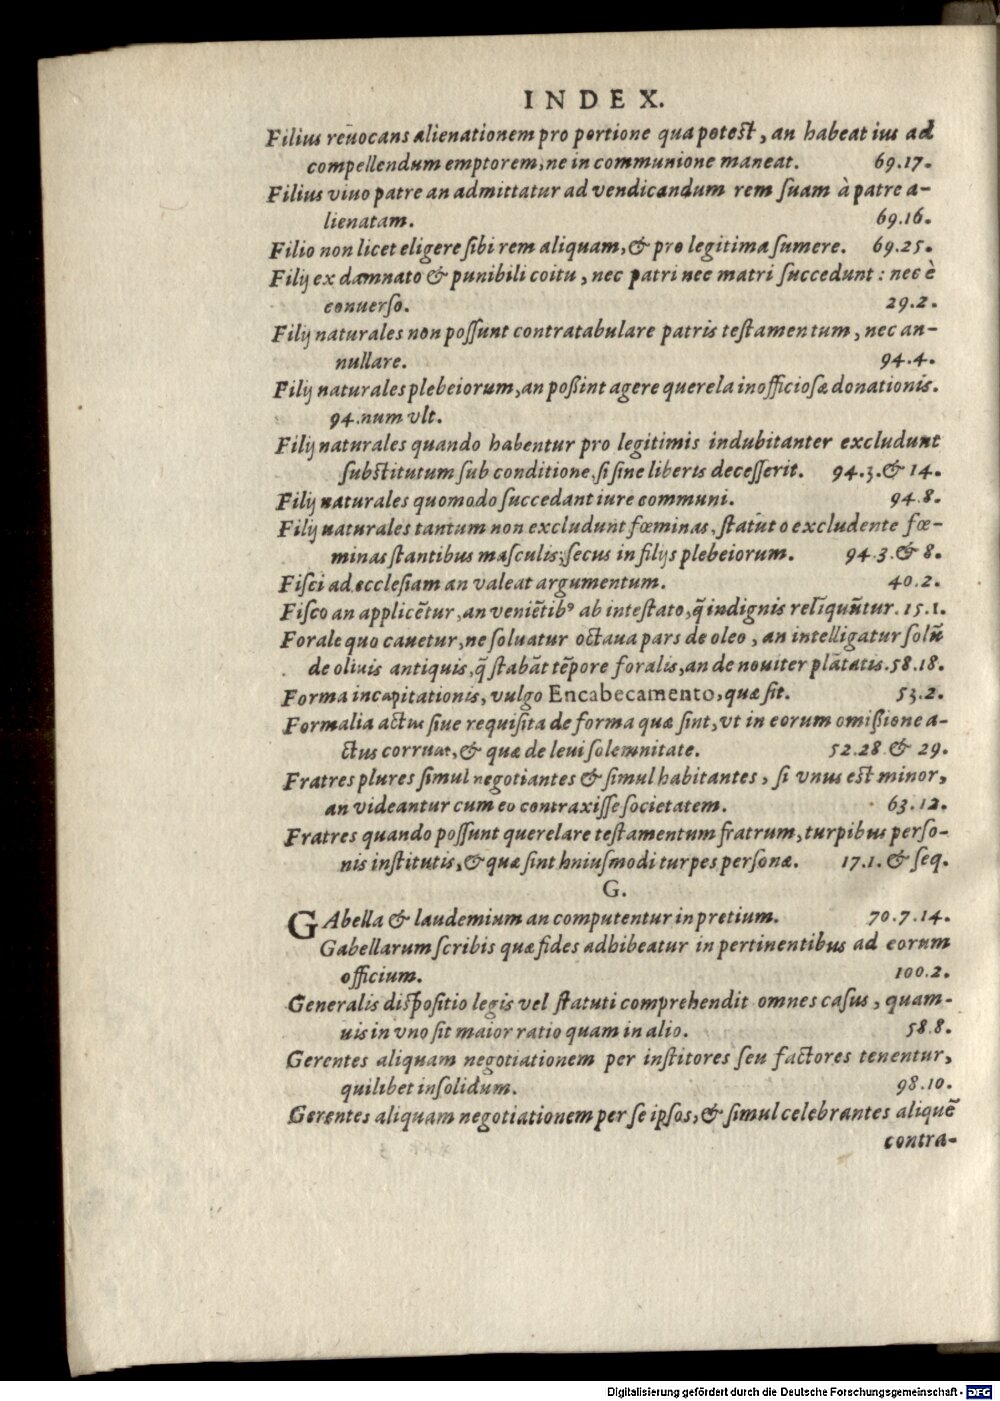 INDEX.
Filius reūocans alienationem pro portione qua potest, an habeat ius ad
compellendum emptorem, ne in communione maneat. 69.17.
Filius viuo patre an admittatur ad vendicandum rem suam à patre a-
lienatam. 69.16.
Filio non licet eligere sibi rem aliquam, & pro legitima sumere. 69.25.
Filij ex damnato & punibili coitu, nec patri nec matri succedunt: nec è
conuerso. 29.2.
Filij naturales non possunt contratabulare patris testamentum, nec an-
nullare. 94.4.
Filij naturales plebeiorum, an poßint agere querela inofficiosæ donationis.
94.num vlt.
Filij naturales quando habentur pro legitimis indubitanter excludunt
substitutum sub conditione, si sine liberis decesserit. 94.3.& 14.
Filij naturales quomodo succedant iure communi. 94.8.
Filij naturales tantum non excludunt fœminas, statuto excludente fœ-
minas stantibus masculis; secus in filijs plebeiorum. 94.3.& 8.
Fisci ad ecclesiam an valeat argumentum. 40.2.
Fisco an applicētur, an veniētibꝰ ab intestato, q̄ indignis relīquūtur. 15.1.
Forale quo cauetur, ne soluatur octaua pars de oleo, an intelligatur solū
de oliuis antiquis, q̄ stabāt tēpore foralis, an de nouiter plātatis. 58.18.
Forma incapitationis, vulgo Encabecamento, quæ sit. 53.2.
Formalia actus siue requisita de forma quæ sint, vt in eorum omißione a-
ctus corruat, & quæ de leui solemnitate. 52.28 & 29.
Fratres plures simul negotiantes & simul habitantes, si vnus est minor,
an videantur cum eo contraxisse societatem. 63.12.
Fratres quando possunt querelare testamentum fratrum, turpibus perso-
nis institutis, & quæ sint huiusmodi turpes personæ. 17.1. & seq.
G.
GAbella & laudemium an computentur in pretium. 70.7.14.
Gabellarum scribis quæ fides adhibeatur in pertinentibus ad eorum
officium. 100.2.
Generalis dispositio legis vel statuti comprehendit omnes casus, quam-
uis in vno sit maior ratio quam in alio. 58.8.
Gerentes aliquam negotiationem per institores seu factores tenentur,
quilibet insolidum. 98.10.
Gerentes aliquam negotiationem per se ipsos, & simul celebrantes aliquē
contra-
Digitalisierung gefördert durch die Deutsche Forschungsgemeinschaft - DFG